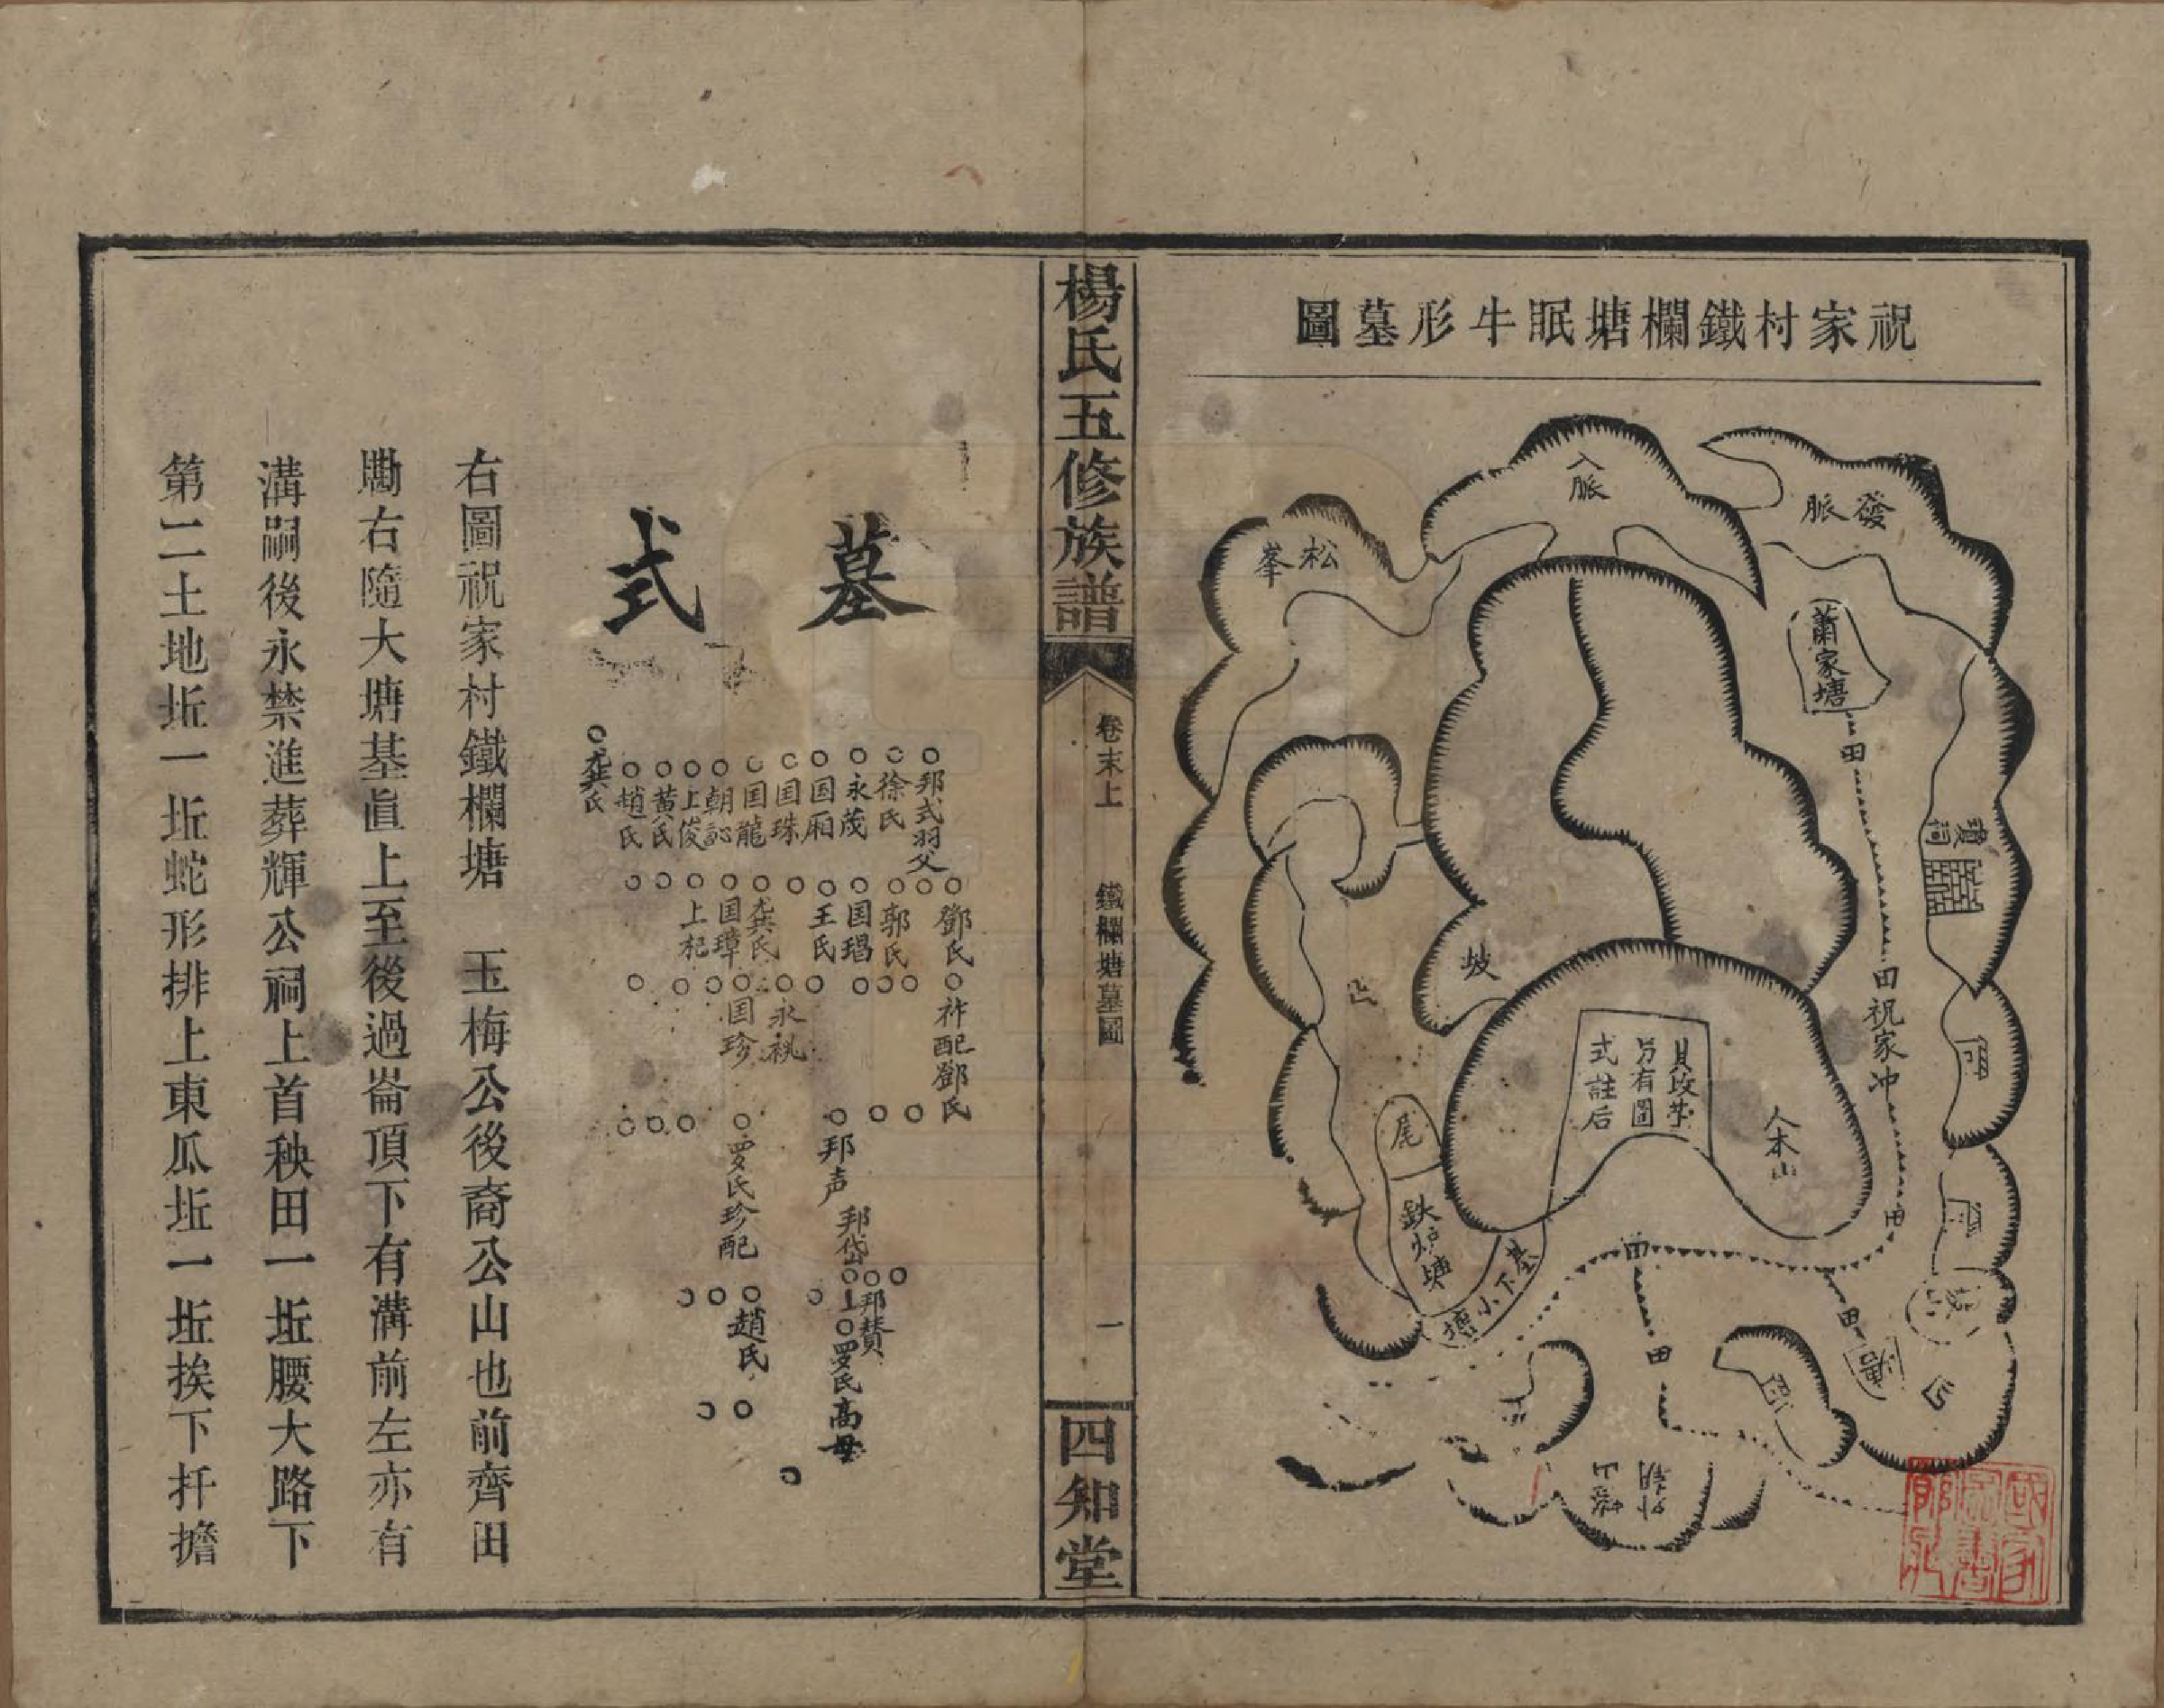 祝家村鐵欄塘眠牛形墓圖
發脈
入脈
松峯
蕭家塘
田
瓊祠
田祝家冲
坡
貝坟茔
另有圖
式註后
人木山
尾
鉄炉塘
基下小塘
田
田
田
田
外朝
山
楊氏五修族譜
卷末上
鐵欄塘墓圖
一
四知堂
墓式
邦式羽父
徐氏
永茂
国厢
国珠
国龍
朝
上俊
黃氏
趙氏
龚氏
鄧氏
郭氏
国瑒
王氏
龚氏
国璋
上杞
祚配鄧氏
永祧
国珍
邦声
罗氏珍配
邦岱
邦賛
上
罗氏高母
趙氏
右圖祝家村鐵欄塘　玉梅公後裔公山也前齊田
墈右隨大塘基直上至後過崙頂下有溝前左亦有
溝嗣後永禁進葬輝公祠上首秧田一坵腰大路下
第二土地坵一坵蛇形排上東瓜坵一坵挨下扦擔